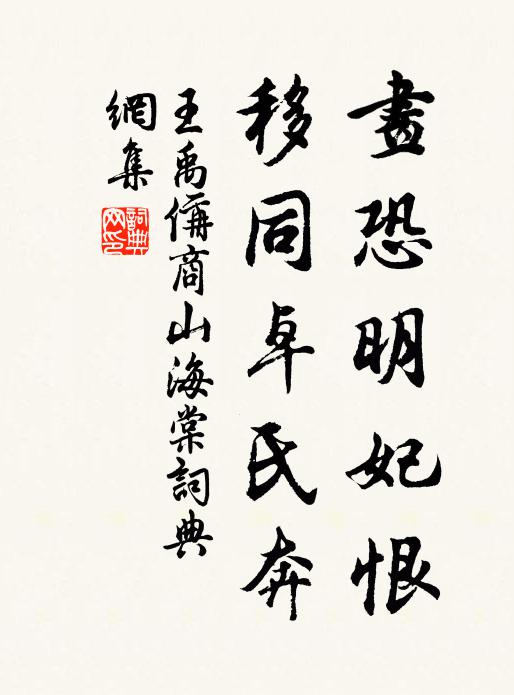 畫恐明妃恨
移同卓氏奔
王禹偁商山海棠詞典
網集
詞典
网印